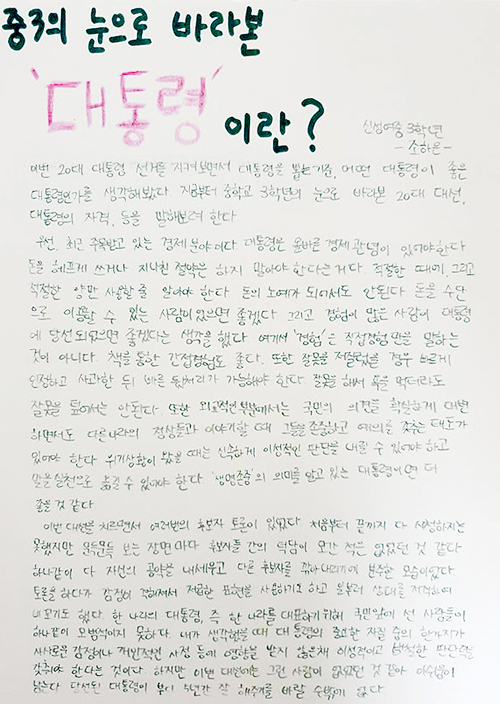 중3의 눈으로 바라본
'대통령'
이란?
신성여중 3학년
- 소하은 -
이번 20대 대통령 선거를 지켜보면서 대통령을 뽑는 기준, 어떤 대통령이 좋은
대통령인가를 생각해봤다. 지금부터 중학교 3학년의 눈으로 바라본 20대 대선,
대통령의 자격, 등을 말해보려 한다.
우선, 최근 주목받고 있는 경제 분야이다. 대통령은 올바른 경제 관념이 있어야한다.
돈을 헤프게 쓰거나 지나친 절약은 하지 말아야 한다는 거다. 적절한 때에, 그리고
적절한 양만 사용할 줄 알아야 한다. 돈의 노예가 되어서도 안된다. 돈을 수단
으로 이용할 수 있는 사람이었으면 좋겠다. 그리고 경험이 많은 사람이 대통령
에 당선 되었으면 좋겠다는 생각을 했다. 여기서 '경험'은 직접경험만을 말하는
것이 아니다. 책을 통한 간접경험도 좋다. 또한 잘못을 저질렀을 경우 빠르게
인정하고 사과한 뒤 빠른 뒷처리가 가능해야 한다. 잘못을 해서 욕을 먹더라도
잘못을 덮어서는 안된다. 또한 외교적인 부분에서는 국민의 의견을 확실하게 대변
하면서도 다른나라의 정상들과 이야기할 때 그들을 존중하고 예의를 갖추는 태도가
있어야 한다. 위기상황이 왔을 때는 신속하게 이성적인 판단을 내릴 수 있어야 하고
말을 실천으로 옮길 수 있어야 한다. '생명존중'의 의미를 알고 있는 대통령이면 더
좋을 것 같다.
이번 대선을 치르면서 여러번의 후보자 토론이 있었다. 처음부터 끝까지 다 시청하지는
못했지만 문득문득 보는 장면마다 후보자들 간의 덕담이 오간 적은 없었던 것 같다.
하나같이 다 자신의 공약을 내세우고 다른 후보자를 깎아내리기에 분주한 모습이었다.
토론을 하다가 감정이 격해져서 저급한 표현을 사용하기도 하고 일부러 상대를 자극하여
내몰기도 했다. 한 나라의 대통령, 즉 한 나라를 대표하기 위해 국민앞에 선 사람들이
하나같이 모범적이지 못하다. 내가 생각했을 때 대통령의 중요한 자질 중의 한가지가
사사로운 감정이나 개인적인 사정 등에 영향을 받지 않은채 이성적이고 냉철한 판단력을
갖춰야 한다는 것이다. 하지만 이번 대선에는 그런 사람이 없었던 것 같아 아쉬움이
남는다. 당선된 대통령이 부디 5년간 잘 해주기를 바랄 수밖에 없다.